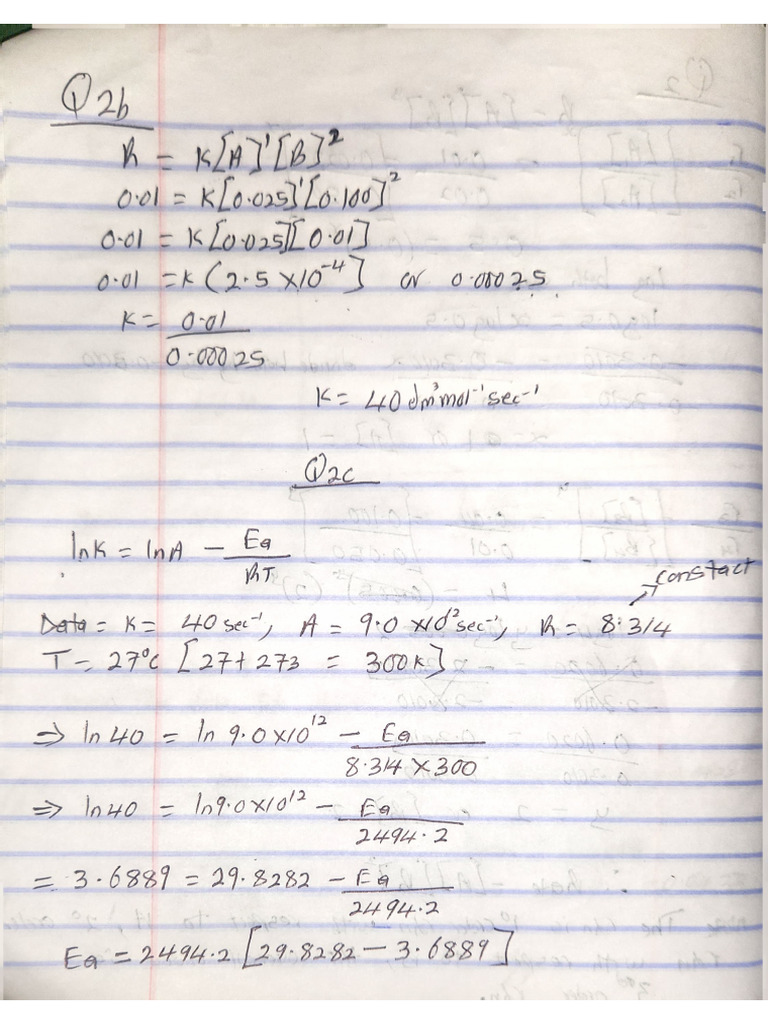 Q2b
R = K[A]¹[B]²
0.01 = K[0.025]¹[0.100]²
0.01 = K[0.025][0.01]
0.01 = K(2.5 × 10⁻⁴] or 0.00025
K = 0.01
0.00025
K = 40 dm³mol⁻¹sec⁻¹
Q2c
lnK = lnA − Ea
RT
constact
Data = K = 40 sec⁻¹, A = 9.0 ×10¹² sec⁻¹, R = 8.314
T = 27°C [27 + 273 = 300K]
⇒ ln 40 = ln 9.0×10¹² − Ea
8.314 × 300
⇒ ln40 = ln9.0×10¹² − Ea
2494.2
= 3.6889 = 29.8282 − Ea
2494.2
Ea = 2494.2 [29.8282 − 3.6889]